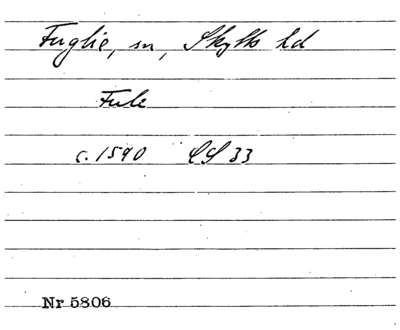 Fuglie, sn, Skytts hd
Fule
c. 1590 LS 33
Nr 5806